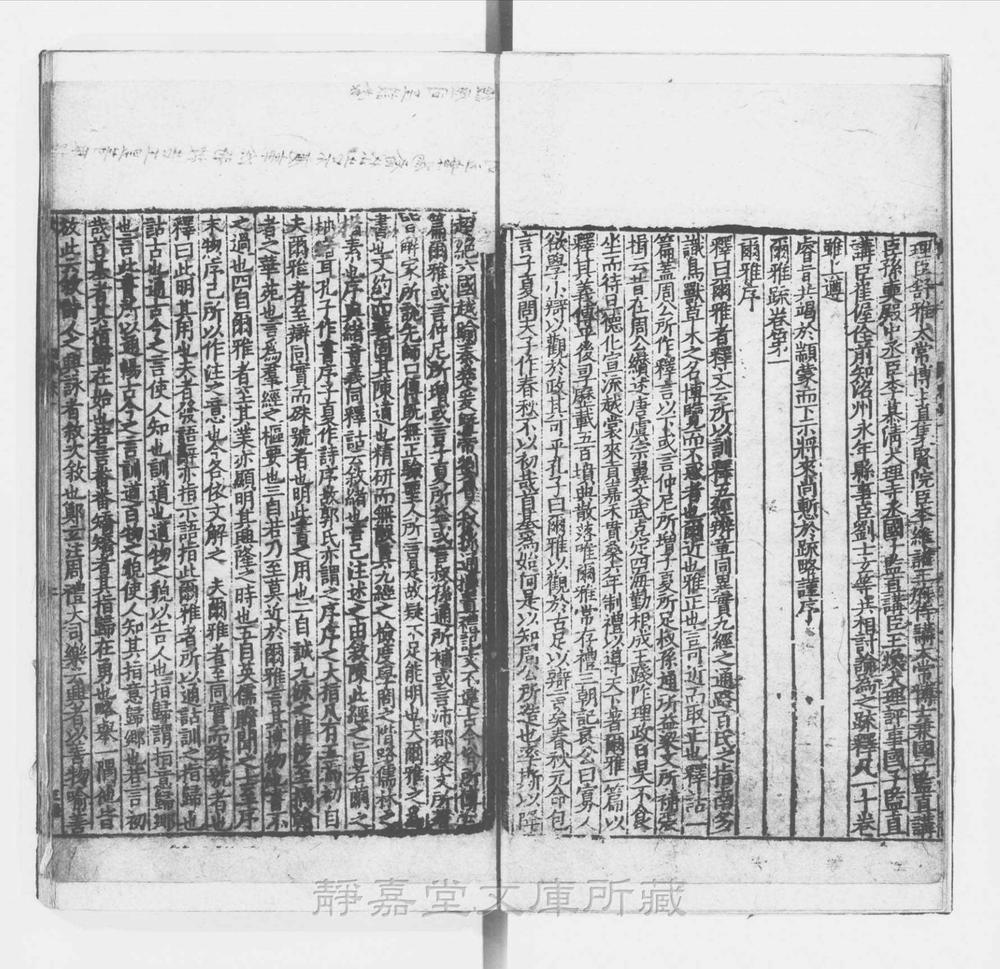 理臣舒雅太常博士直集賢院臣李維諸王府侍講太常博士兼國子監直講
臣孫奭殿中丞臣李慕清大理寺丞國子監直講臣王煥大理評事國子監直
講臣崔偓佺前知洺州永年縣事臣劉士玄等共相討論為之疏釋凡一十卷
雖上遵
睿旨共竭於顓蒙而下示將來尚慙於疏略謹序
爾雅疏卷第一
爾雅序
釋曰爾雅者釋文云所以訓釋五經辨章同異實九經之通路百氏之指南多
識鳥獸草木之名博覽而不惑者也爾近也雅正也言可近而取正也釋詁一
篇蓋周公所作釋言以下或言仲尼所增子夏所足叔孫通所益梁文所補張
揖云昔在周公纘述唐虞宗翼文武克定四海勤相成王踐阼理政日昃不食
坐而待旦德化宣流越裳來貢嘉禾貫桑六年制禮以導天下著爾雅一篇以
釋其義傳乎後歷載五百墳典散落唯爾雅常存禮三朝記哀公曰寡人
欲學小辯以觀於政其可乎孔子曰爾雅以觀於古足以辯言矣春秋元命包
言子夏問夫子作春秋不以初哉首基為始何是以知周公所造也率斯以降
超絕六國越踰秦楚爰曁帝劉魯人叔孫通撰置禮記文不違古今俗所傳三
篇爾雅或言仲尼所增或言子夏所益或言叔孫通所補或言沛郡梁文所考
皆解家所說先師口傳旣無正驗聖人所言是故疑不足能明也夫爾雅之為
書也文約而義固其陳道也精研而無誤真九經之檢度學問之階路儒林之
楷素也序與緒音義同釋詁云叙緒也言己注述之由叙陳此經之旨若繭之
抽緒耳孔子作書序子夏作詩序故郭氏亦謂之序序之大指凡有五焉初自
夫爾雅者至辯同實而殊號者也明此書之用也二自誠九流之津涉至摛翰
者之華苑也言為羣經之樞要也三自若乃至莫近於爾雅言其博物他書不
之過也四自爾雅者至其業亦顯明其興隆之時也五自英儒贍聞之士至序
末物序己所以作注之意也今各依文解之 夫爾雅者至同實而殊號者也
釋曰此明其用也夫者發語辭亦指示語指此爾雅者所以通詁訓之指歸也
詁古也通古今之言使人知也訓道也道物之貌以告人也指歸謂指意歸鄉
也言此書所以通暢古今之言訓道百物之貌使人知其指意歸鄉也若言初
哉首基者其指歸在始也若言番番矯矯者其指歸在勇也略舉一隅他皆
放此云叙詩人之興詠者叙次叙也鄭玄注周禮大司樂云興者以善物喻善
靜嘉堂文庫所藏